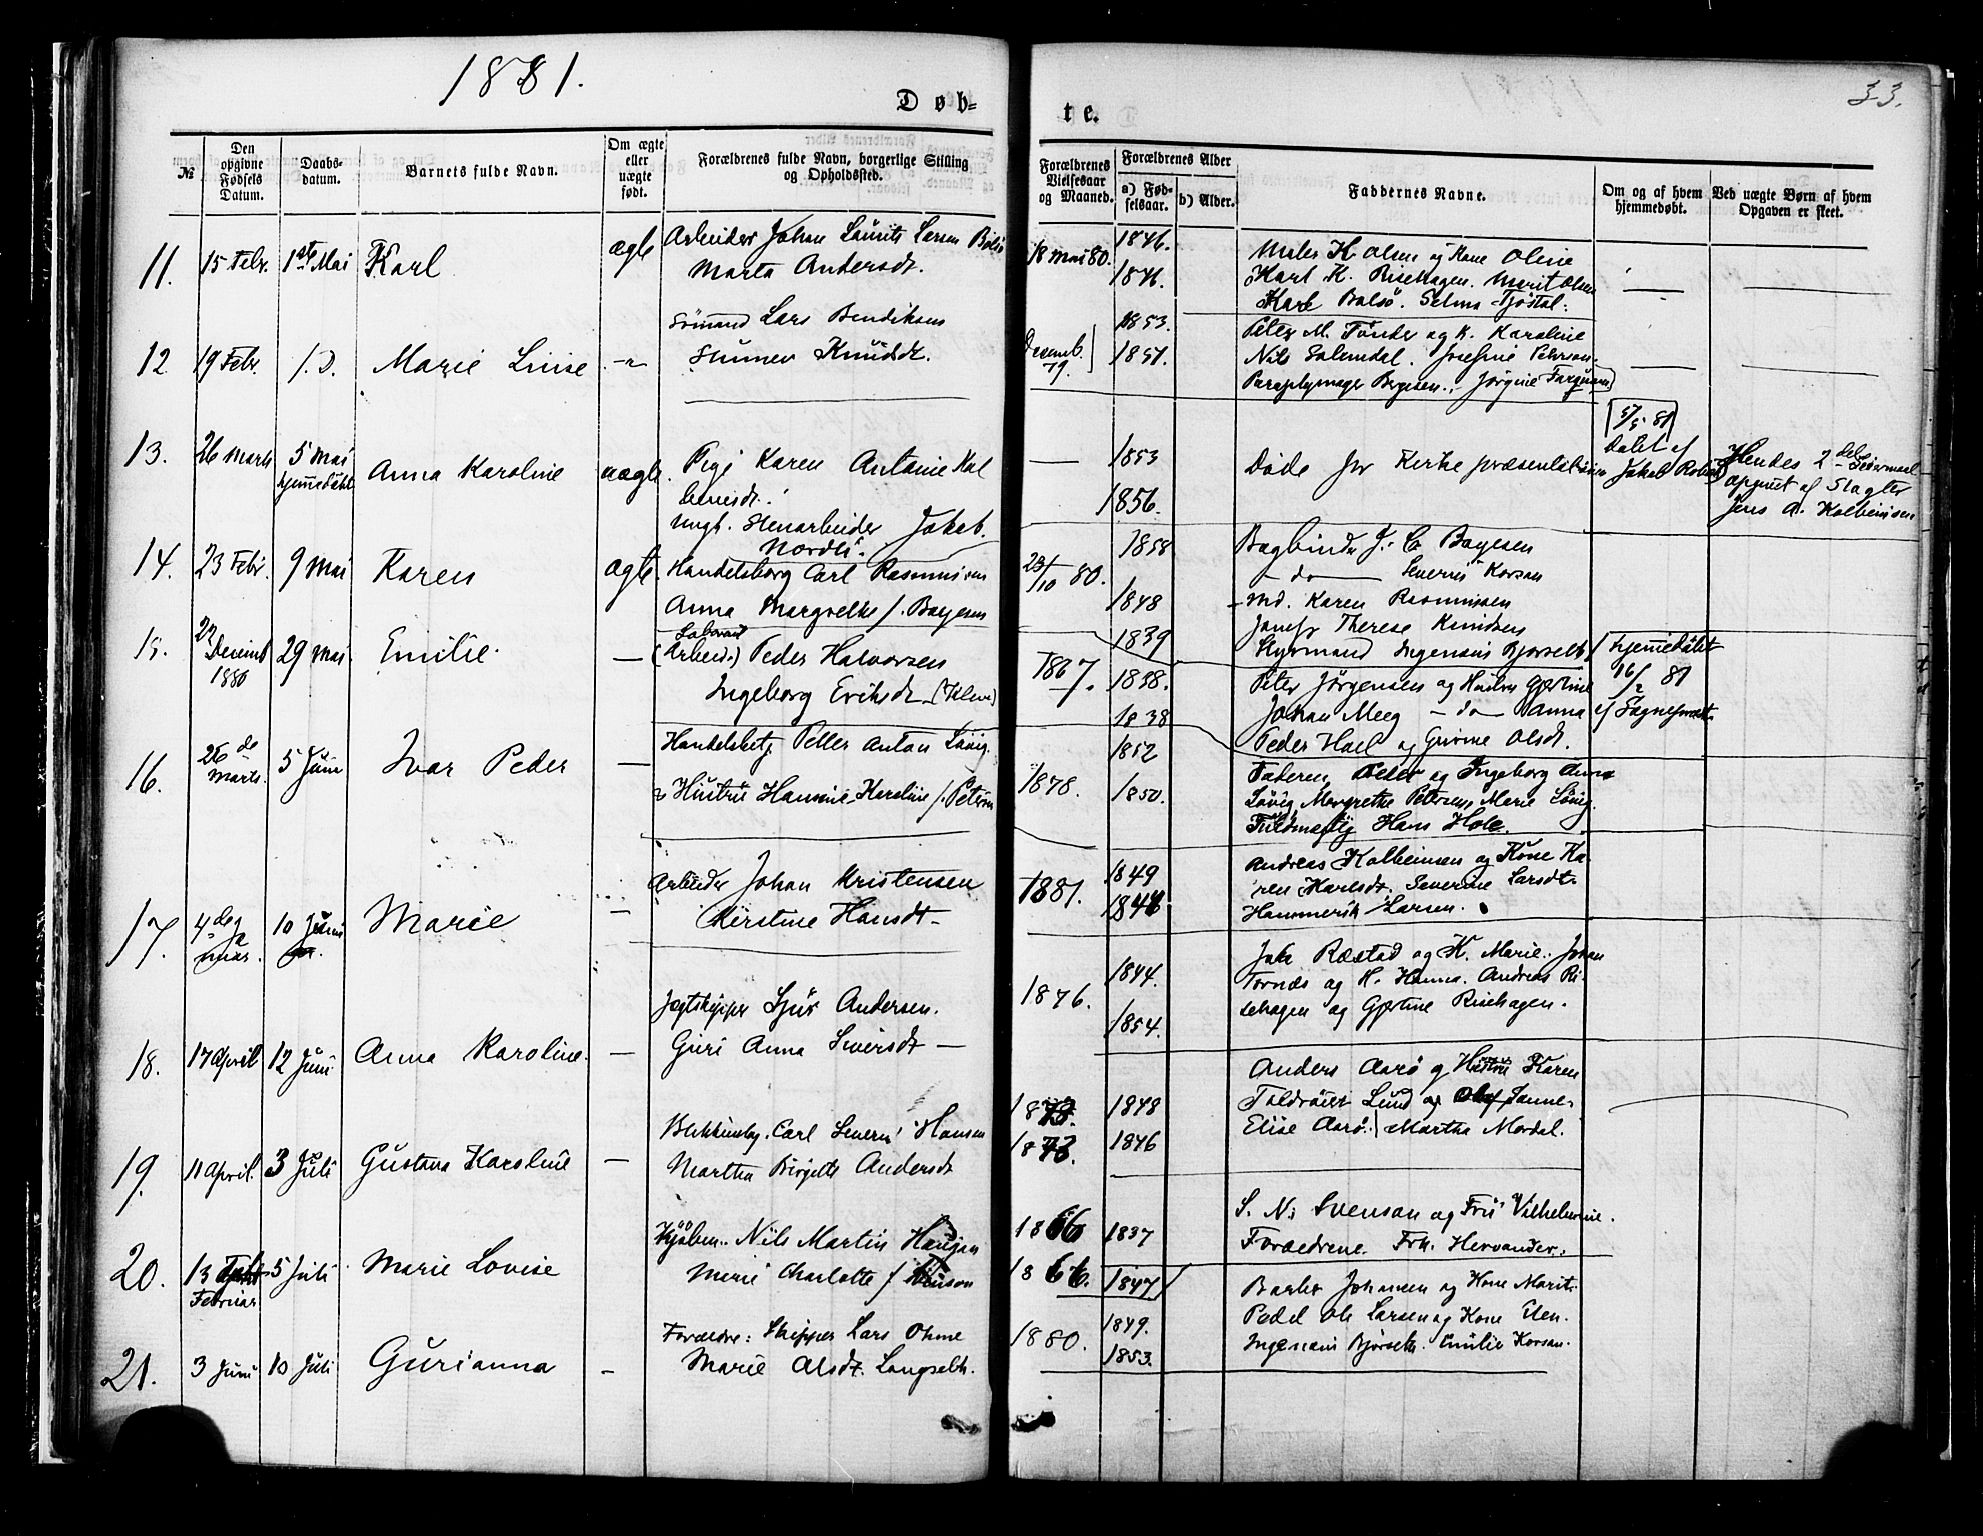 1881.
Døb-
te.
33.
№
Den opgivne Fødsels Datum.
Daabs-datum.
Barnets fulde Navn.
Om ægte eller uægte født.
Forældrenes fulde Navn, borgerlige Stilling og Opholdssted.
Forældrenes Vielsesaar og Maaned.
Forældrenes Alder
a) Fød-selsaar.
b) Alder.
Faddernes Navne.
Om og af hvem hjemmedøbt.
Ved uægte Børn af hvem Opgaven er skeet.
11. 15 Febr. 1ste Mai Karl ægte Arbeider Johan Laurits Larsen
Marta Andersdt.
18 Mai 80. 1846. 1846.
K. Olsen og Kone Oline
Karl K. Risehagen. Marit Olsen
Karl Bolsø. Selma Tjøstal.
12 19 Febr. 1. D. Marie Lovise - " Sømand Lars Bendiksen
Knudsdt.
Decemb. 79. 1853. 1851.
Peter M. Tønder og K. Karoline
Nils Solemdal. Josefine Pehrson.
Paraplymager Bergesen. Jørgine
13. 26 Marts 5 Mai hjemmedøbt Anna Karoline uægte. Pige Karen Antonie Kol
beinsdt.
Ungk. Stenarbeider Jakob
Nordli.
1853 1856.
Døde før Kirkepræsentationen
5/5 81
Døbt af
Jakob
Hendes 2det Leiermaal
opgivet af Slagter
Jens A. Kolbeinsen
14. 23 Febr. 9 Mai Karen ægte Handelsborg Carl Rasmussen
Anna Margrethe f. Boyesen
23/10 80. 1858 1848
Bogbinder J. C. Boyesen
- do - Severin Korsan
Md. Karen Rasmussen
Jomfr Therese Knudsen
15. 22 Decemb 1880 29 Mai Emilie. — (Arbeid.) Peder Halvorsen
Ingeborg Eriksdt.
1867. 1839 1838.
Styrmand Ingenani Bjørseth
Peter Jørgensen og Hustru Gjertine
Johan Meeg - do - Anna
Peder Hoel og Gurine Olsdt.
hjemmedøbt
16/2 81
af Sognepræst.
16. 26de Marts. 5 Juni Ivar Peder — Handelsbetj. Petter Anton Løvig.
& Hustru Hannine Karoline f. Petersen
1878. 1838 1852 1850.
Faderen, Peter og Ingeborg Anna
Løvig, Margrethe Petersen, Marie Løvig.
Fuldmægtig Hans Hole.
17. 4de Juni Marie — Arbeider Johan Kristensen
Kirstine Hansdt.
1881. 1849 1848
Andreas Kolbeinsen og Kone Ka-
ren Karlsdt. Severine Larsdt.
Hammerik Larsen.
18. 17 April 12 Juni Anna Karoline. — Jægtskipper Sjur Andersen.
Guri Anna Siversdt —
1876. 1844. 1854.
Joh. Røstad og H. Marie. Johan
Tornæs og H. Hanna. Andreas Ri-
sehagen og Gjertine Risehagen.
19. 11 April. 3 Juli Gustava Karoline — Blikkenslg. Carl Severin Hansen
Martha Birgitte Andersdt
1873. 1873. 1848 1846
Anders Aarø og Hustru Karen
Toldroier Lund og Olaf, Janne.
Elise Aarø. Martha Mordal.
20. 13 Februar 5 Juli Marie Lovise Kjøbm. Nils Martin Haugen
Marie Charlotte f.
1866 1866. 1837 1847
S. N. Svenson og Fru Vilhelmine.
Forældrene. Frk. Hervander.
21. 3 Juni 10 Juli Gurianna - Forældre: Skipper Lars Ohme
Marie Olsdt. Langseth.
1880. 1849. 1853.
Johansen og Kone Marit.
Peder Ols Larsen og Kone Elen.
Ingenani Bjørseth. Emilie Korsan.